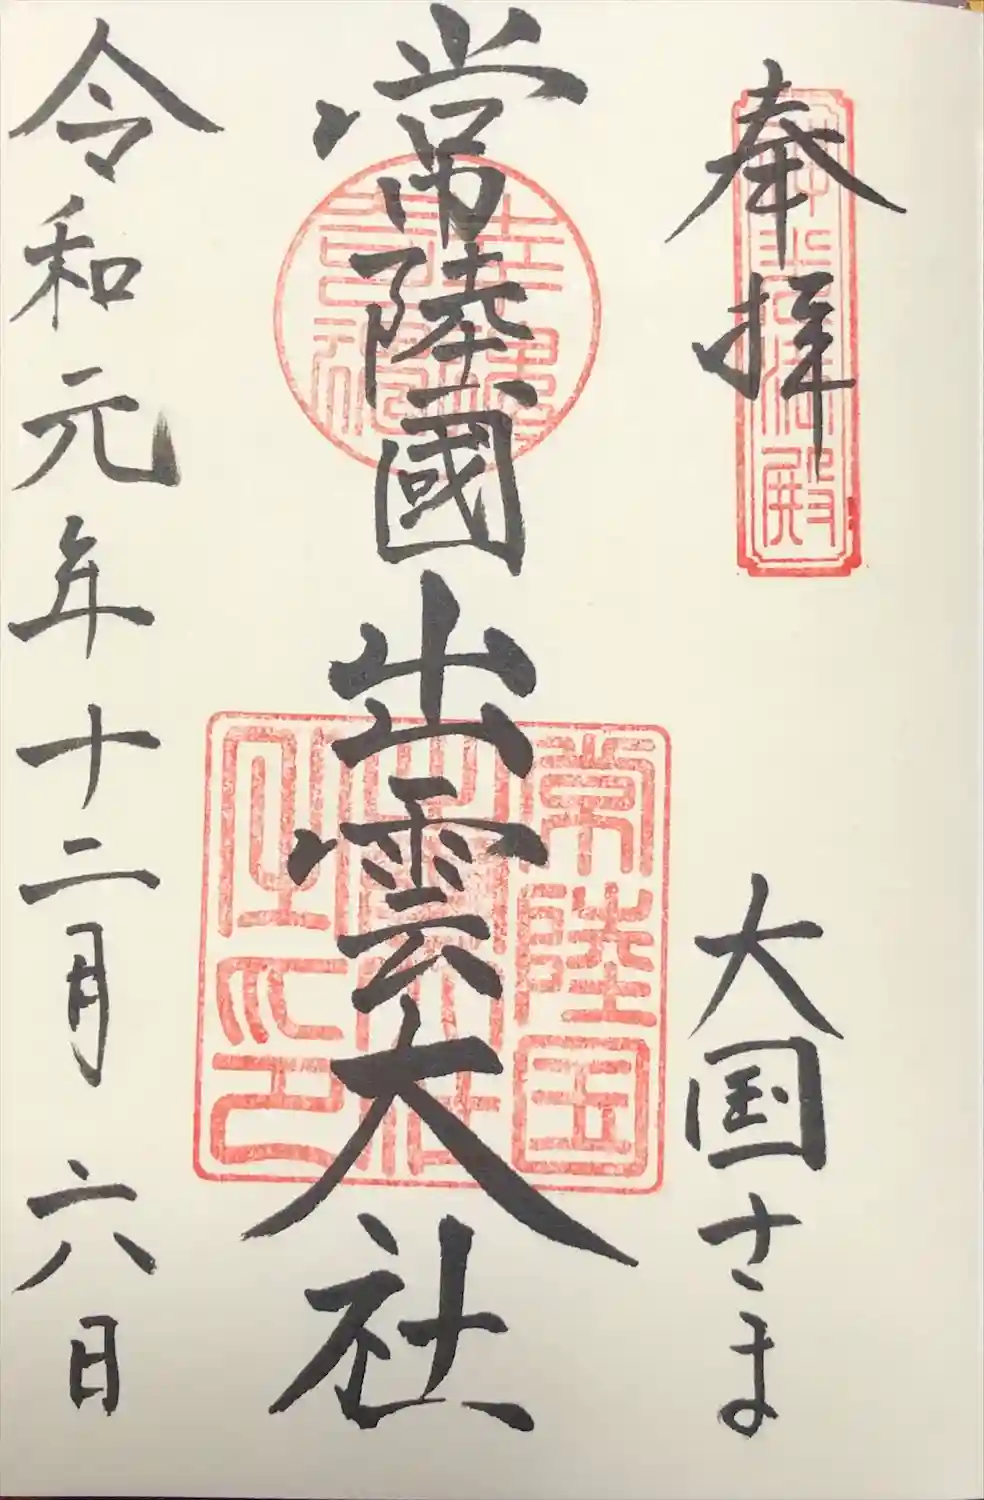 奉拝
大国さま
常陸國出雲大社
常陸国
出雲大社
之印
令和元年十二月六日